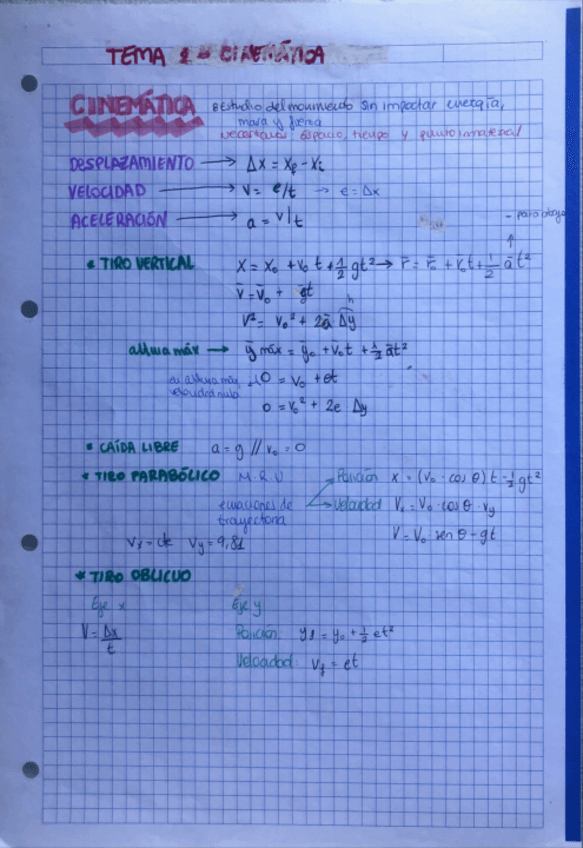 TEMA 1 - CINEMÁTICA
CINEMÁTICA estudio del movimiento sin impactar energía,
masa y fuerza
necesitamos: espacio, tiempo y punto inmaterial
DESPLAZAMIENTO → Δx = xf - xi
VELOCIDAD → v = e/t → e = Δx
ACELERACIÓN → a = v/t
- para
* TIRO VERTICAL x = x₀ + v₀t + 1/2 gt² → r̄ = r̄₀ + v₀t + 1/2 āt²
v̄ = v̄₀ + gt
h
v² = v₀² + 2ā Δy
altura máx → ȳ máx = ȳ₀ + v₀t + 1/2 āt²
altura máx 0 = v₀ + et
velocidad nula
0 = v₀² + 2e Δy
* CAÍDA LIBRE a = g // v₀ = 0
* TIRO PARABÓLICO M.R.U Posición x = (v₀ · cos θ) t - 1/2 gt²
ecuaciones de → Velocidad Vx = V₀ · cos θ · vy
trayectoria
V = V₀ sen θ - gt
Vx = cte Vy = 9,81
* TIRO OBLICUO
Eje x Eje y
V = Δx/t Posición: yf = y₀ + 1/2 et²
Velocidad: vf = et